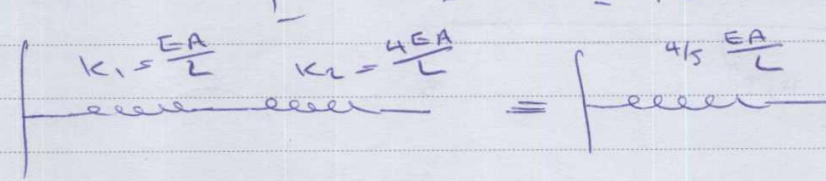 K₁ = EA/L K₂ = 4EA/L = 4/5 EA/L